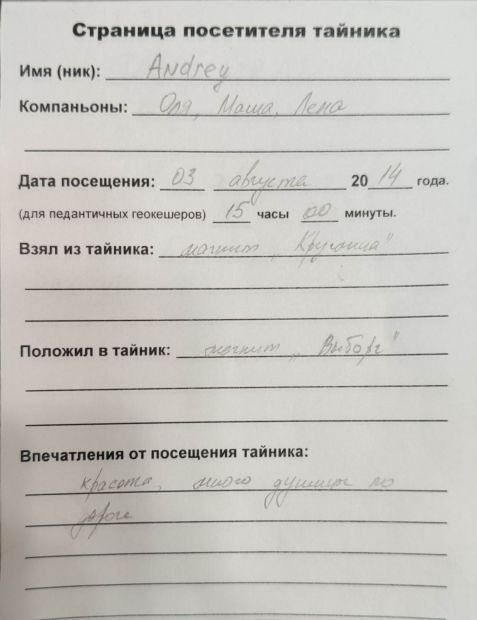 Страница посетителя тайника
Имя (ник): Andrey
Компаньоны: Оля, Маша, Лена
Дата посещения: 03 августа 2014 года.
(для педантичных геокешеров) 15 часы 00 минуты.
Взял из тайника: магнит „
Положил в тайник: магнит „Выборг"
Впечатления от посещения тайника:
красота, много душицы по
дороге